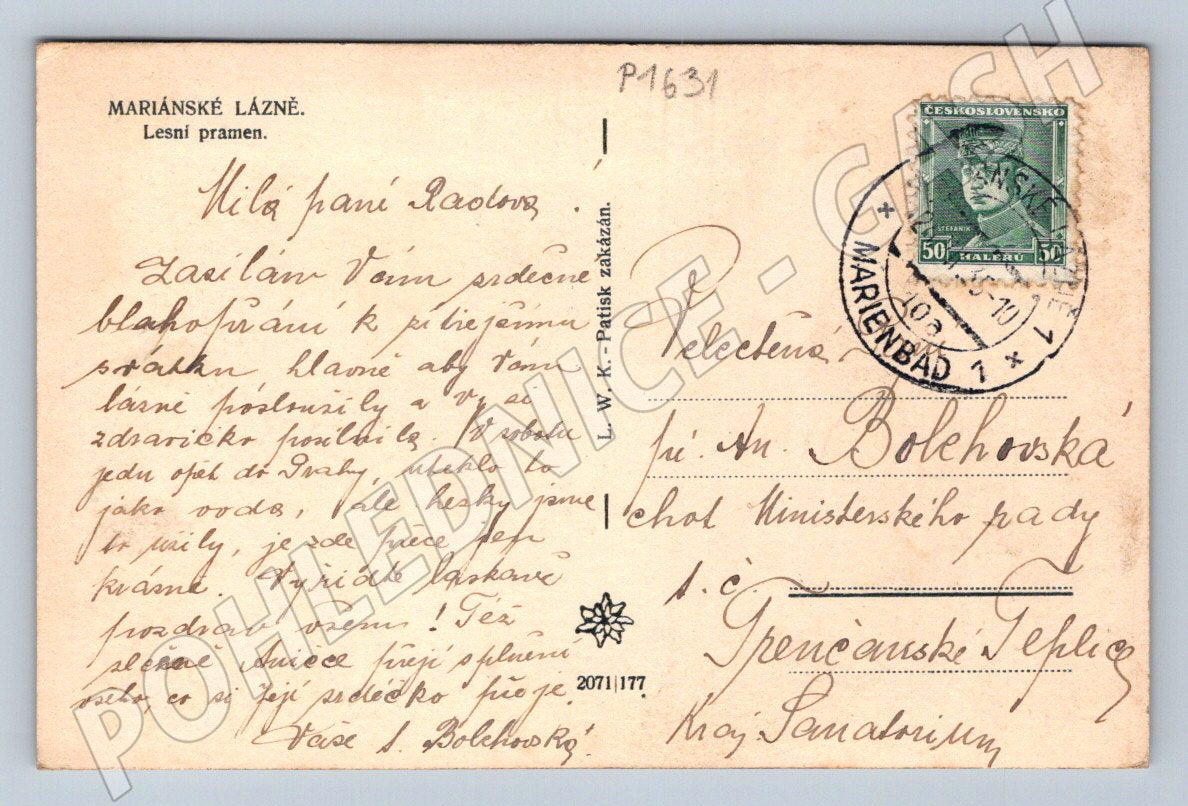 P1631
MARIÁNSKÉ LÁZNĚ.
Lesní pramen.
Milá paní Radová.
Zasílám Vám srdečné
blahopřání k zítřejšímu
svátku hlavně aby Vám
lázně posloužily a Vy si
zdravíčko posílnila. V sobotu
jedu opět do Prahy, uteklo to
jako voda, ale hezky jsme
to užily, je zde přece jen
krásně. Vyřiďte laskavě
pozdrav všem! Též
slečně Aničce přeji splnění
všeho, co si její srdéčko přeje.
Vaše Bolehovská.
L. W. K. - Patisk zakázán.
2071|177
ČESKOSLOVENSKO
ŠTEFÁNIK
50 HALÉŘŮ 50
MARIÁNSKÉ LÁZNĚ 1
MARIENBAD 1
Velectěná
pí. An. Bolehovská
choť Ministerského rady
t. č.
Trenčanské Teplice
Kraj. Sanatorium
POHLEDNICE - CASH